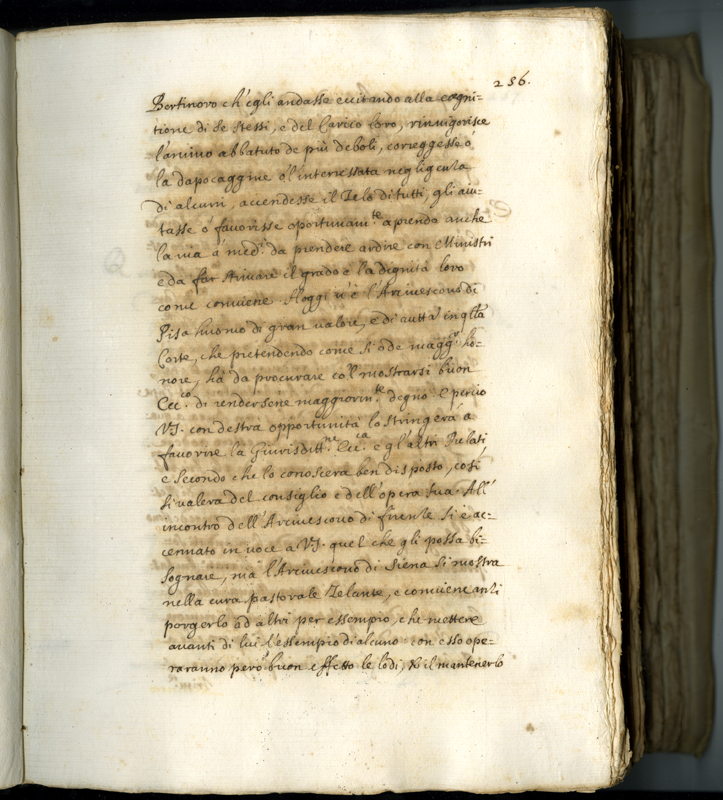 256.
Bertinoro ch'egli andasse eccitando alla cogni-
tione di se stessi, e del Carico loro, rinvigorisse
l'animo abbatuto de più deboli, correggesse ò
la dapocaggine ò l'interessata negligenza
di alcuni, accendesse il Zelo di tutti, gli aiu-
tasse ò favorisse oportunam.te aprendo anche
la via à med.i da prendere ardire con Ministri
e da far stimare il grado e la dignità loro
come conviene. Hoggi v'è l'Arcivescovo di
Pisa huomo di gran valore, e di autt.à in q.lla
Corte, che pretendendo come si ode magg.r ho-
nore, hà da procurare co'l mostrarsi buon
Ecc.co di rendersene maggiorm.te degno. E perciò
V.S. con destra opportunità lo stringerà à
favorire la Giurisditt.ne Ecc.ca e gl'altri Prelati
e secondo che lo conoscerà ben disposto, così
si valerà del consiglio e dell'opera sua. All'
incontro dell'Arcivescovo di firenze si è ac-
cennato in voce à V.S. quel che gli possa bi-
sognare, mà l'Arcivescovo di Siena si mostra
nella cura pastorale Zelante, e conviene anzi
porgerlo ad altri per essempio, che mettere
avanti di lui l'essempio di alcuno: con esso ope-
raranno però buon effetto le lodi, & il mantenerlo